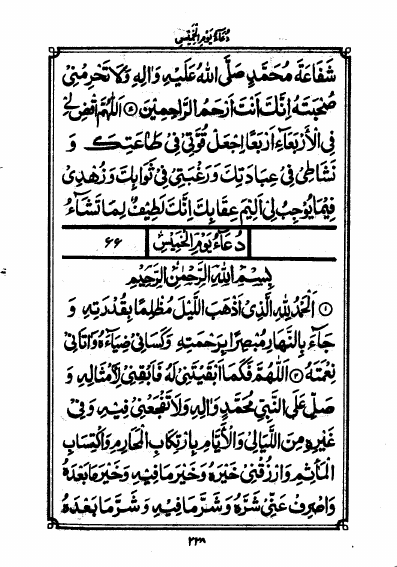 دُعَاءُ يَوْمِ الْخَمِيْسِ
شَفَاعَةَ مُحَمَّدٍ صَلَّى اللهُ عَلَيْهِ وَاٰلِهٖ وَلَا تَحْرِمْنِيْ
صُحْبَتَهٗ اِنَّكَ اَنْتَ اَرْحَمُ الرَّاحِمِيْنَ ⑤ اَللّٰهُمَّ اقْضِ لِيْ
فِي الْاَرْبَعَآءِ اَرْبَعًا اِجْعَلْ قُوَّتِيْ فِيْ طَاعَتِكَ وَ
نَشَاطِيْ فِيْ عِبَادَتِكَ وَرَغْبَتِيْ فِيْ ثَوَابِكَ وَزُهْدِيْ
فِيْمَا يُوْجِبُ لِيْ اَلِيْمَ عِقَابِكَ اِنَّكَ لَطِيْفٌ لِمَا تَشَآءُ
دُعَاءُ يَوْمِ الْخَمِيْسِ ۶۶
بِسْمِ اللهِ الرَّحْمٰنِ الرَّحِيْمِ
① اَلْحَمْدُ لِلّٰهِ الَّذِيْ اَذْهَبَ اللَّيْلَ مُظْلِمًا بِقُدْرَتِهٖ وَ
جَآءَ بِالنَّهَارِ مُبْصِرًا بِرَحْمَتِهٖ وَكَسَانِيْ ضِيَآءَهٗ وَاٰتَانِيْ
نِعْمَتَهٗ ② اَللّٰهُمَّ فَكَمَا اَبْقَيْتَنِيْ لَهٗ فَاَبْقِنِيْ لِاَمْثَالِهٖ وَ
صَلِّ عَلَى النَّبِيِّ مُحَمَّدٍ وَاٰلِهٖ وَلَا تَفْجَعْنِيْ فِيْهِ وَفِيْ
غَيْرِهٖ مِنَ اللَّيَالِيْ وَالْاَيَّامِ بِارْتِكَابِ الْمَحَارِمِ وَاكْتِسَابِ
الْمَاٰثِمِ وَارْزُقْنِيْ خَيْرَهٗ وَخَيْرَ مَا فِيْهِ وَخَيْرَ مَا بَعْدَهٗ
وَاصْرِفْ عَنِّيْ شَرَّهٗ وَشَرَّ مَا فِيْهِ وَشَرَّ مَا بَعْدَهٗ